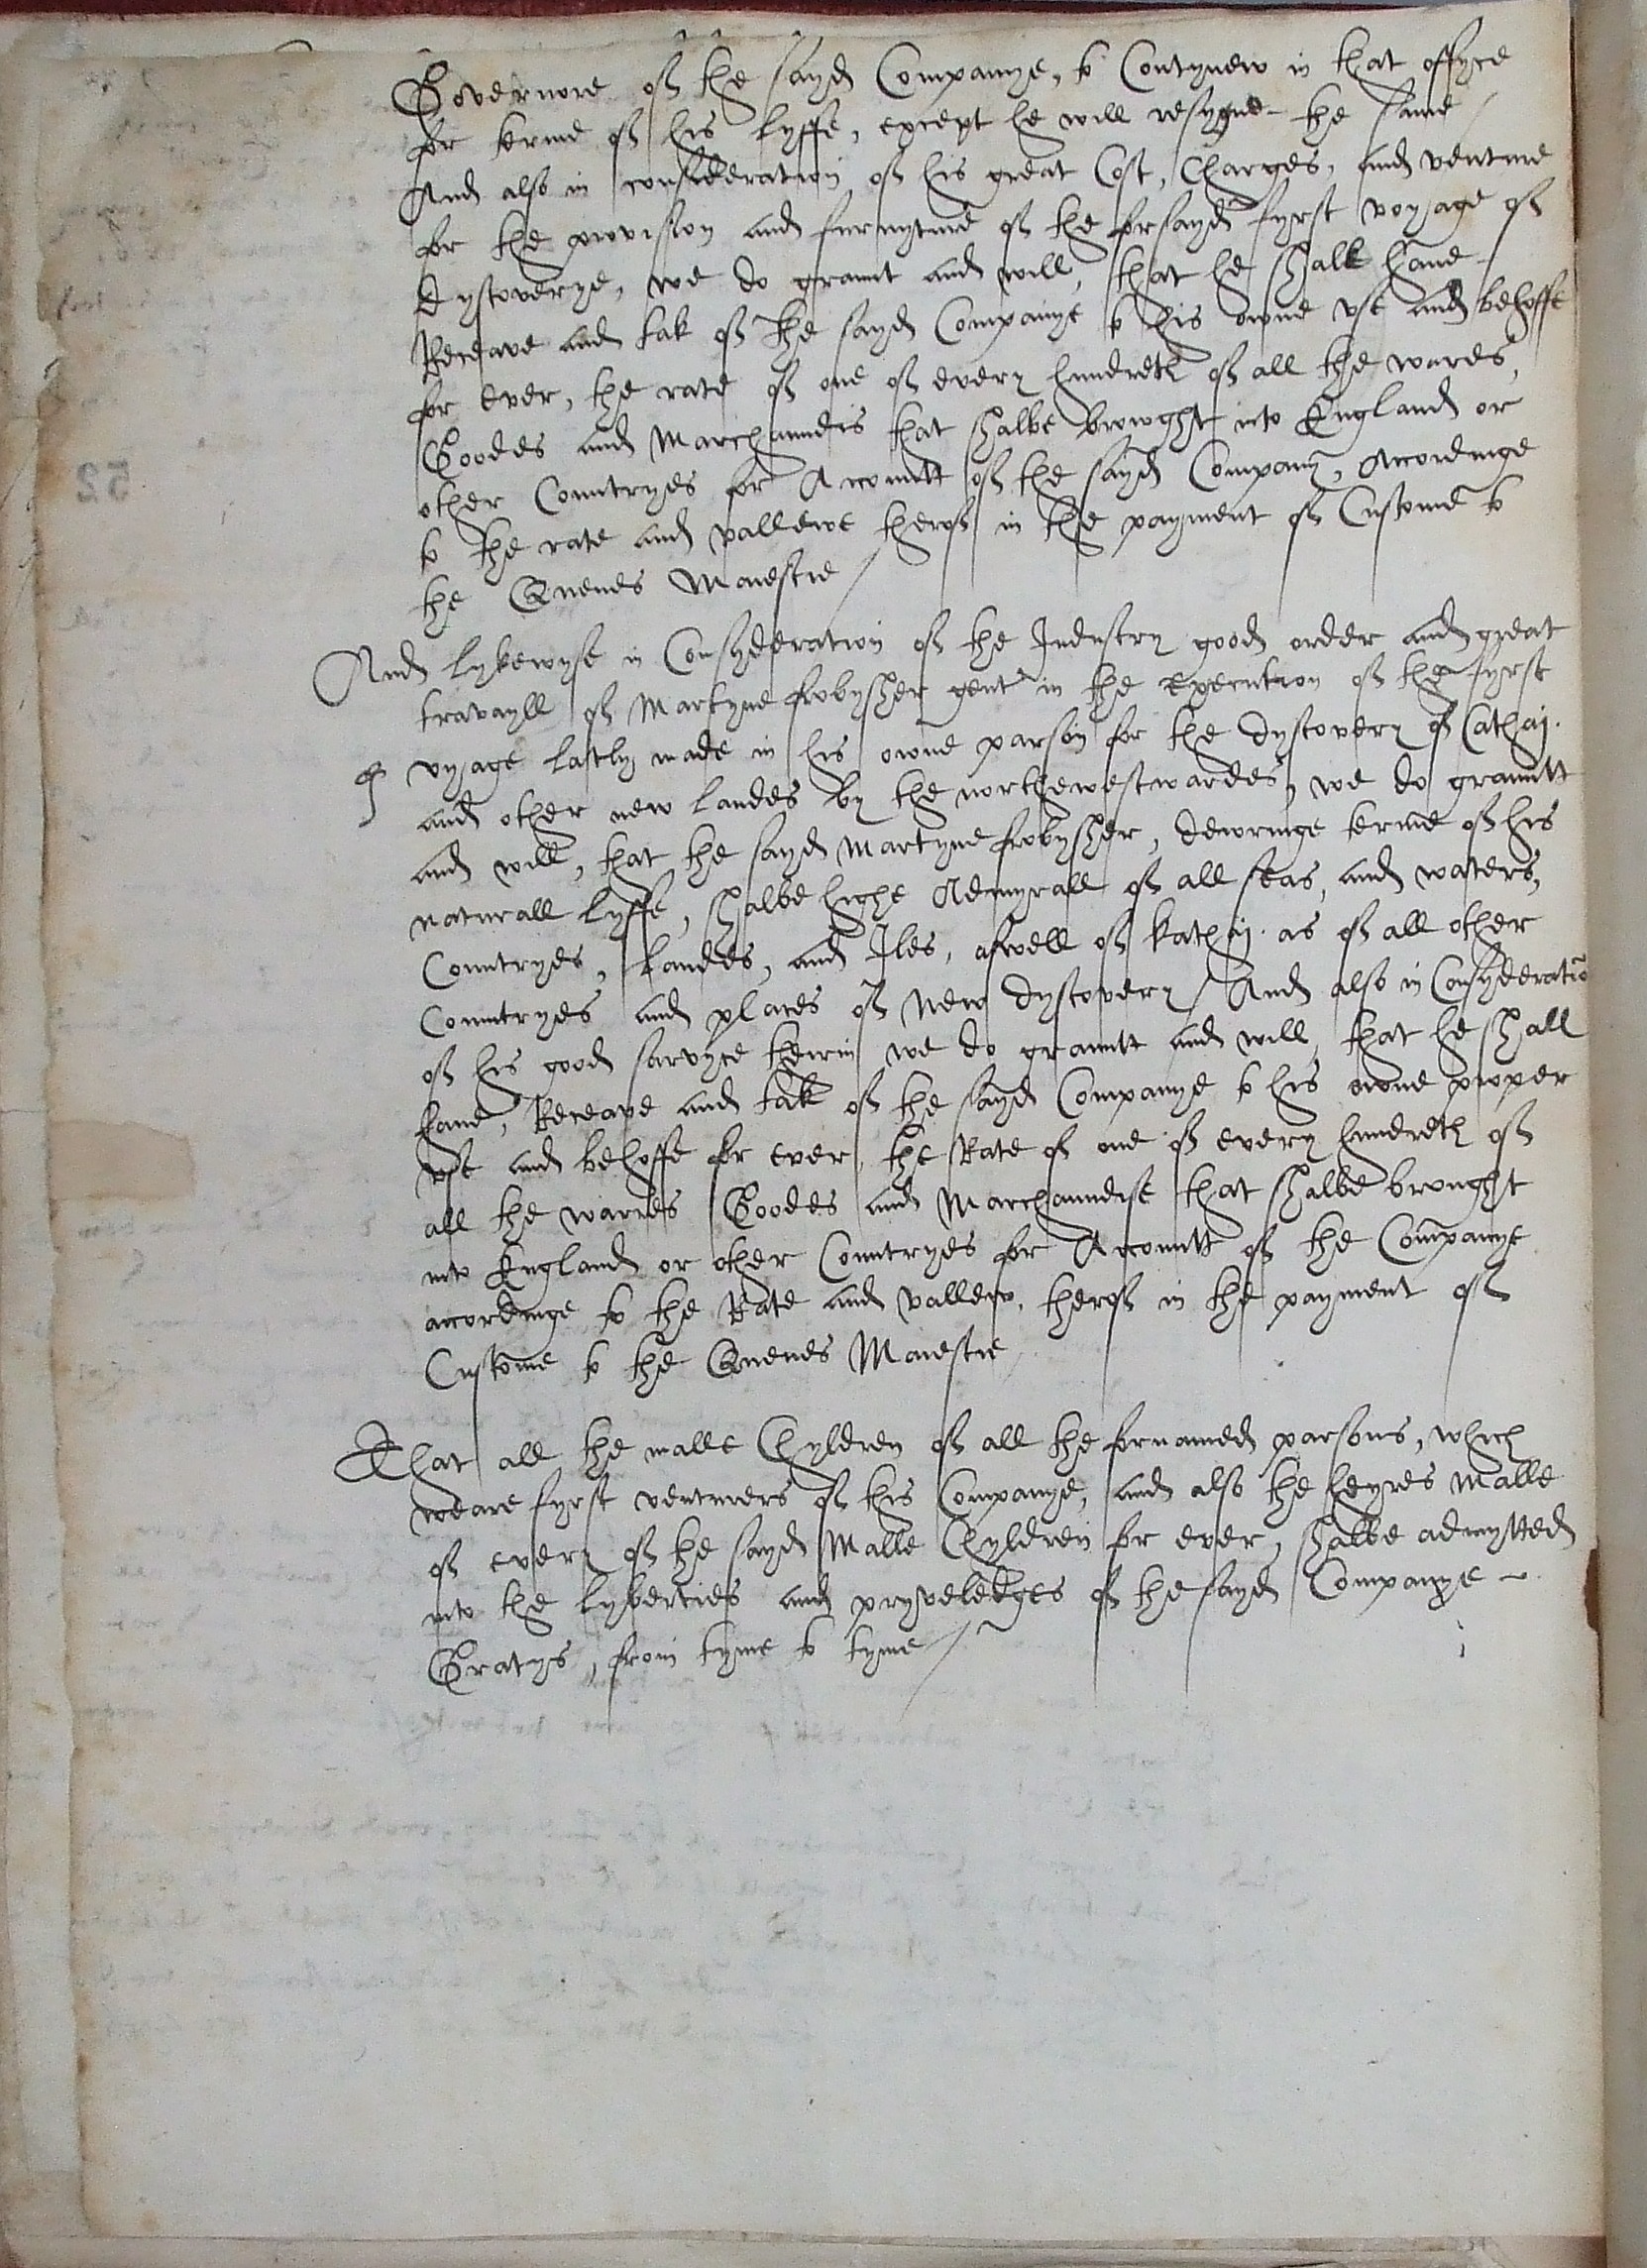 Governore of the sayd Companye, to Contynew in that offyce
for terme of his lyffe, except he will resygne the same /
And also in consideration of his great Cost, Charges, and venture
for the provision and furnyture of the forsayd fyrst voyage of
dyscoverye, we do graunt and will, that he shall have
Receave and tak of the sayd Companye to his owne use and behoffe
for ever, the rate of one of every hundreth of all the wares,
Goodes and Marchaundis that shalbe browght into England or
other Countryes for Acountt of the sayd Company, Accordinge
to the rate and vallewe therof in the payment of Custome to
the Quenes Maiestie /
And lykewyse in Consyderation of the Industry good order and great
travayll of Martyne frobysher gent in the Execution of the fyrst
vyage lastly made in his owne parson for the dyscovery of Cathaj.
and other new landes by the northewestwardes, we do grauntt
and will, that the sayd Martyne frobysher, dewringe terme of his
naturall lyffe, shalbe highe Admyrall of all seas, and waters,
Countryes, landes, and Iles, aswell of kathaj. as of all other
Countryes and places of new dyscovery / And also in Consyderatio
of his good sarvyce therin we do grauntt and will, that he shall
have, Receave and tak of the sayd Companye to his owne proper
use and behoffe for ever, the Rate of one of every hundreth of
all the warres Goodes and Marchaundise that shalbe brought
into England or other Countryes for Acountt of the Companye
acordinge to the Rate and vallew, therof in the payment of
Custome to the Quenes Maiestie /
That all the malle Chyldren of all the fornamed parsons, which
weare fyrst venturers of this Companye, and also the heyres malle
of every of the sayd Malle Chyldren for ever, shalbe admytted
into the lyberties and pryveledges of the sayd Companye
Gratys, from tyme to tyme /
52